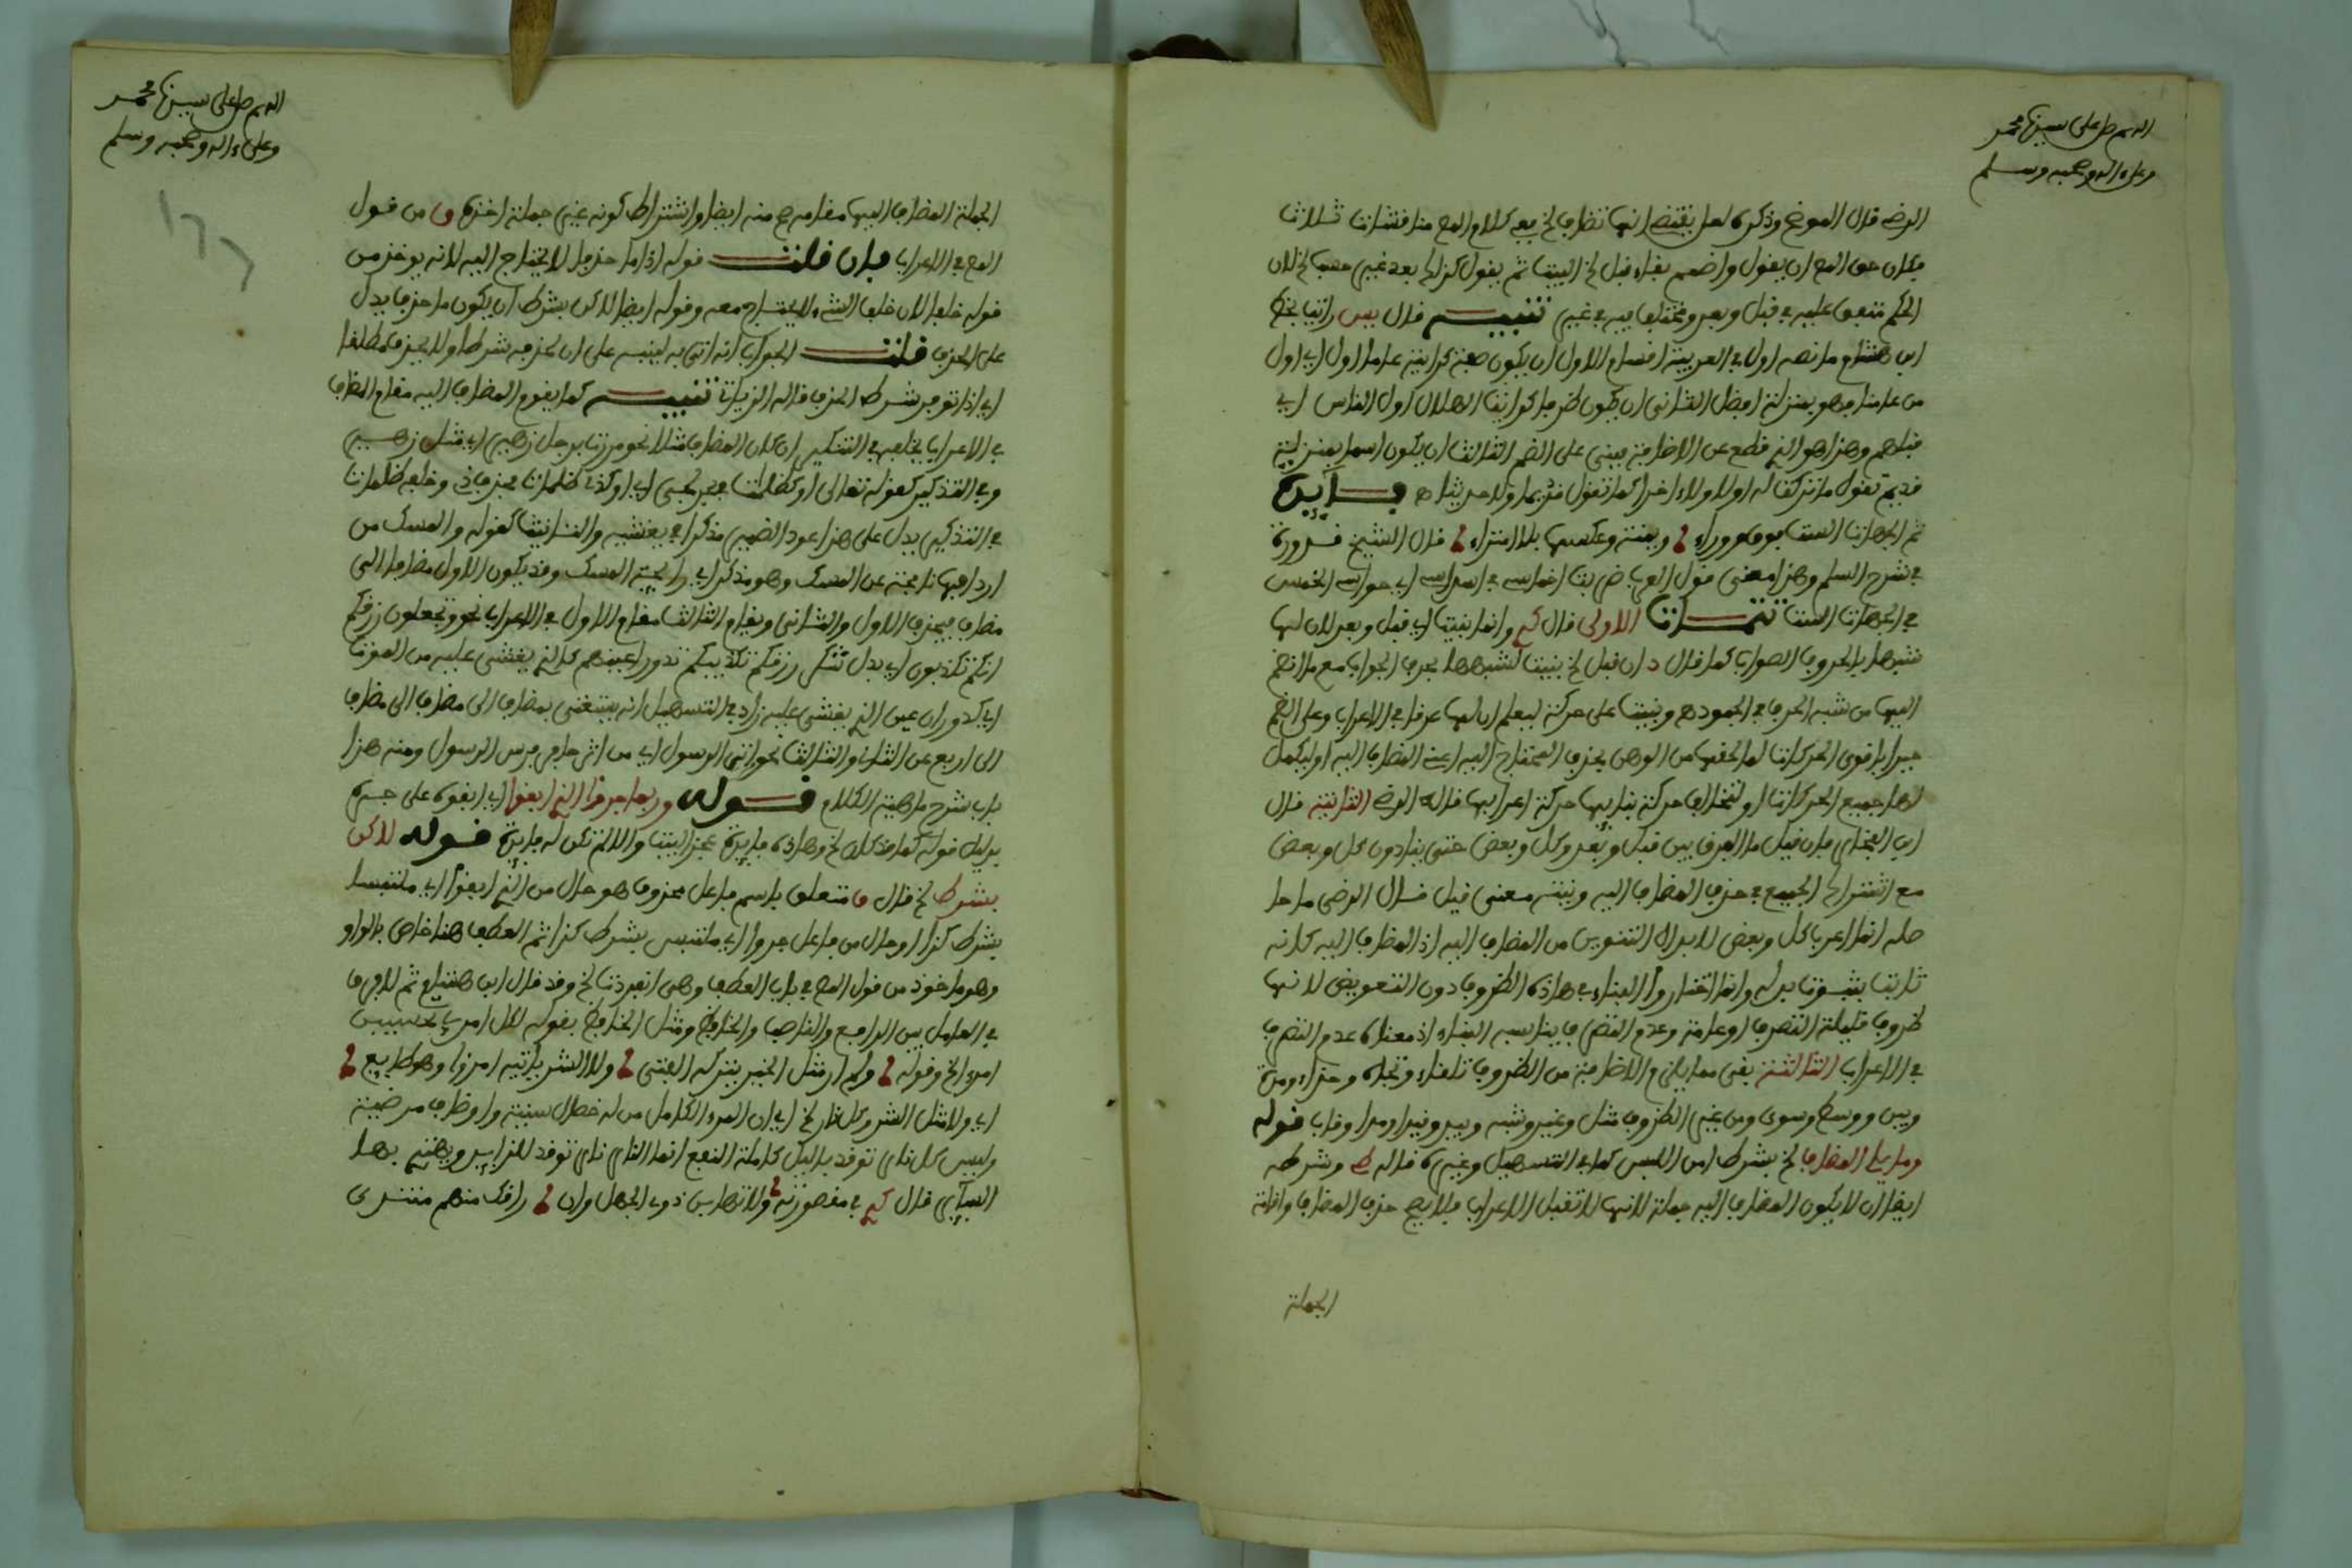 اللهم صل على سيدنا محمد
وعلى ءاله وصحبه وسلم
الرضى قال الموضح وذكره لعل يقتضى انها تضاف لخ بعد كلام المص مناقشات ثلاث
فكان حق المص ان يقول واضمم بناء قبل لخ البيت ثم يقول كذاك بعد غير حسب لخ لان
الحكم متفق عليه في قبل وبعد ومختلف فيه في غير تنبيــه قال يس رايت بخط
ابن هشام ما نصه اول في العربية اقسام الاول ان يكون صفة كرايته عاما اول اي اول
من عامنا فهو بمنزلة افضل الثاني ان يكون ظرفا كرايت الهلال اول الناس اي
قبلهم وهذا هو الذي قطع عن الاضافة يبنى على الضم الثالث ان يكون اسما بمنزلة
قديم تقول ما تركت له اولا ولا ءاخرا كما تقول قديما ولا حديثا ه فـايدة
ثم الجهات الست فوق وراء ؟ ويمنة وعكسها بلا امتراء ؟ قال الشيخ قدورة
في شرح السلم وهذا معنى قول العارض بنا اخماسه في اسداسه اي حواسه الخمس
في الجهات الست تتمــات الاولى قال وانما بنيت اي قبل وبعد لان لها
شبها بالحروف الصواب كما قال د ان قبل لخ بنيت لشبهها بحرف الجواب مع ما انضم
اليها من شبه الحرف في الجمود ه وبنيت على حركة ليعلم ان لها عرفا في الاعراب وعلى الضم
جبرا باقوى الحركات لما لحقها من الوهن بحذف المحتاج اليه اعني المضاف اليه او ليكمل
لها جميع الحركات او لتخالف حركة بنايها حركة اعرابها قاله الرضى الثانية قال
ابن الفخار فان قيل ما الفرق بين قبل وبعد وكل وبعض حتى ينادون كل وبعض
مع اشتراك الجميع في حذف المضاف اليه ونيته معنى قيل قال الرضى ما حا
صله انما اعرب كل وبعض لابدال التنوين من المضاف اليه اذ المضاف اليه كانه
ثابت بثبوت بدله وانما اختاروا البناء في هاذه الظروف دون التعويض لانها
ظروف قليلة التصرف او عادمة وعدم التصرف يناسبه البناء اذ معناه عدم التصرف
في الاعراب الثالثة بقي مما يلازم الاضافة من الظروف تلقاء وتجاه وحذاء ودون
وبين ووسط وسوى ومن غير الظروف مثل وغير وشبه وبيد وقيد وقدا وقاب قوله
وما يلي المضاف لخ بشرط امن اللبس كما في التسهيل وغيره قاله وشرطه
ايضا ان لا يكون المضاف اليه جملة لانها لا تقبل الاعراب فلا يصح حذف المضاف واقامة
الجملة
اللهم صل على سيدنا محمد
وعلى ءاله وصحبه وسلم
١٦٦
الجملة المضاف اليها مقامه صح منه ايضا واشتراط كونه غير جملة اخذه من قول
المص في الاعراب فإن قلتـ قوله اذا ما حذفا لا يحتاج اليه لانه يوخذ من
قوله خلفا لان خلف الشيء لا يجتمع معه وقوله ايضا لاكن بشرط ان يكون ما حذف يدل
على الحذف قلتـ الجواب انه اتى به لينبه على ان لحذفه شرطا ولا يحذف مطلقا
اي اذا توفر شرط الحذف قاله الزيات تنبيــه كما يقوم المضاف اليه مقام المضاف
في الاعراب يخلفه في التنكير ان كان المضاف مثلا نحو مررت برجل زهير اي مثل زهير
وفي التذكير كقوله تعالى او كظلمات في بحر لجي اي او كذي ظلمات فحذف ذي وخلفه ظلمات
في التذكير يدل على هذا عود الضمير مذكرا في يغشيه والتانيث كقوله والمسك من
اردافها نافجة عن المسك وهو مذكر اي رايحة المسك وقد يكون الاول مضافا الى
مضاف فيحذف الاول والثاني ويقام الثالث مقام الاول في الاعراب نحو وتجعلون رزقكم
انكم تكذبون اي بدل شكر رزقكم تكذيبكم تدور اعينهم كالذي يغشى عليه من الموت
اي كدوران عين الذي يغشى عليه زاد في التسهيل انه يستغنى بمضاف الى مضاف الى مضاف
الى اربع عن الثاني والثالث نحو اثر الرسول اي من اثر حافر فرس الرسول ومنه هذا
باب شرح ماهية الكلام قــولـه وربما جروا الذي ابقوا اي ابقوه على جره
بدليل قوله كما قد كان لخ وهاذه فايدة عجز البيت والا لم تكن له فايدة قوله لاكن
بشرط لخ قال متعلق باسم فاعل محذوف هو حال من الذي ابقوا اي ملتبسا
بشرط كذا او حال من فاعل جروا اي ملتبس بشرط كذا ثم العطف هنا خاص بالواو
وهو ماخوذ من قول المص في باب العطف وهي انفردت لخ وقد قال ابن هشام ثم لا فرق
في العامل بين الرافع والناصب والخافض ومثل الخافض بقوله اكل امرئ تحسبين
امرءا لخ وقوله ؟ ولم ار مثل الخير يتركه الفتى ؟ ولا الشر ياتيه امرؤا وهو طايع ؟
اي ولا مثل الشر وكل نار لخ اي ان المرء الكامل من له خصال سنية واوصاف مرضية
وليس كل نار توقد بالليل كاملة النفع انما النار نار توقد للزاير ويهتدي بها
الساري قال في مقصورته ؟ ولاتهارس ذوي الجهل وان ؟ راقك منهم منتدى